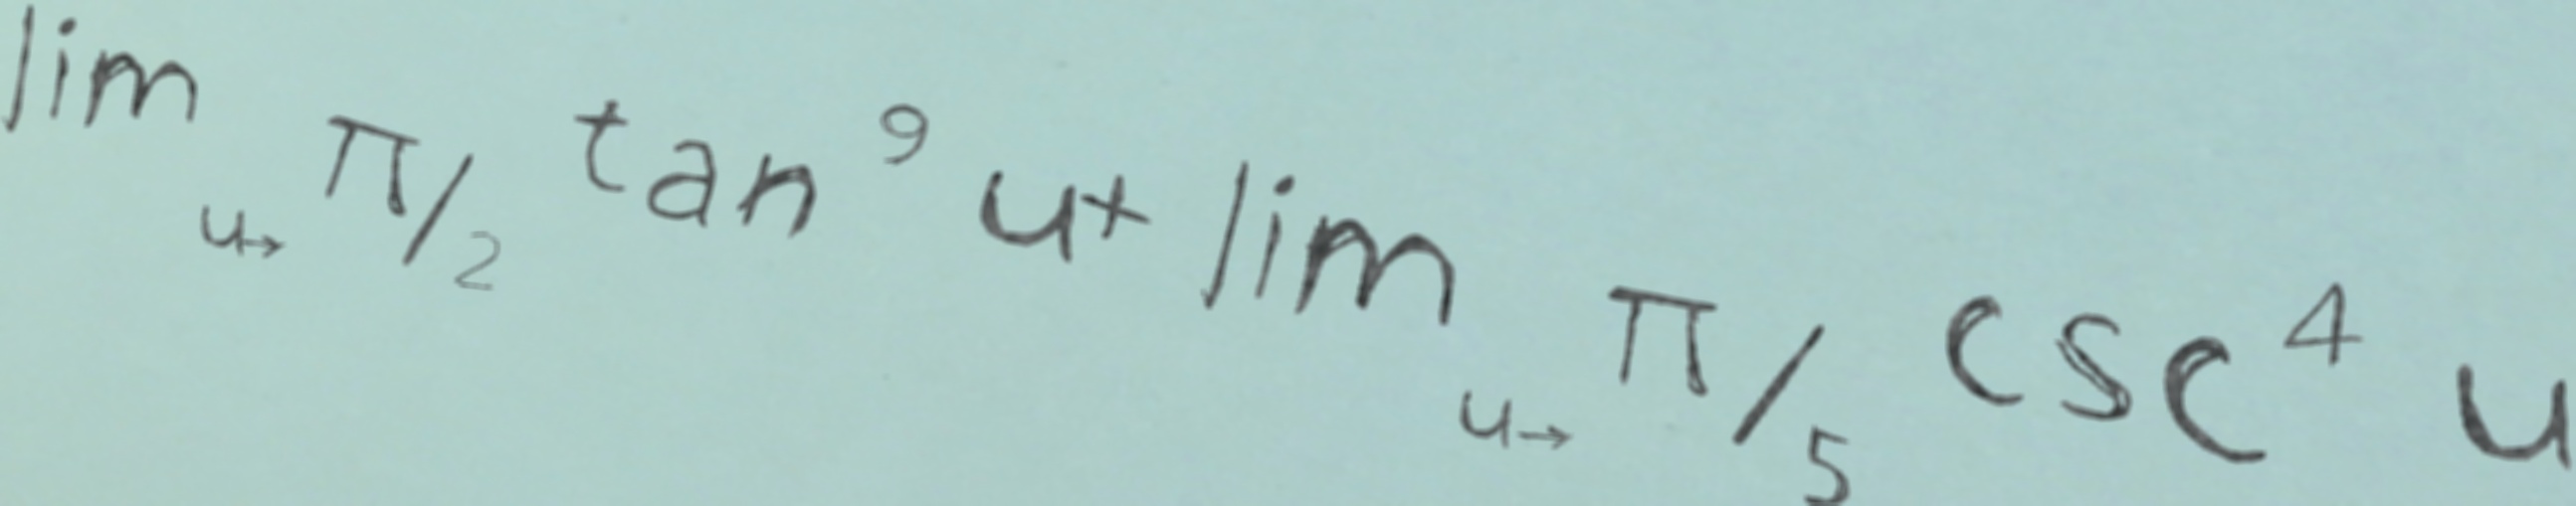 lim u→ π/2 tan⁹ u + lim u→ π/5 csc⁴ u